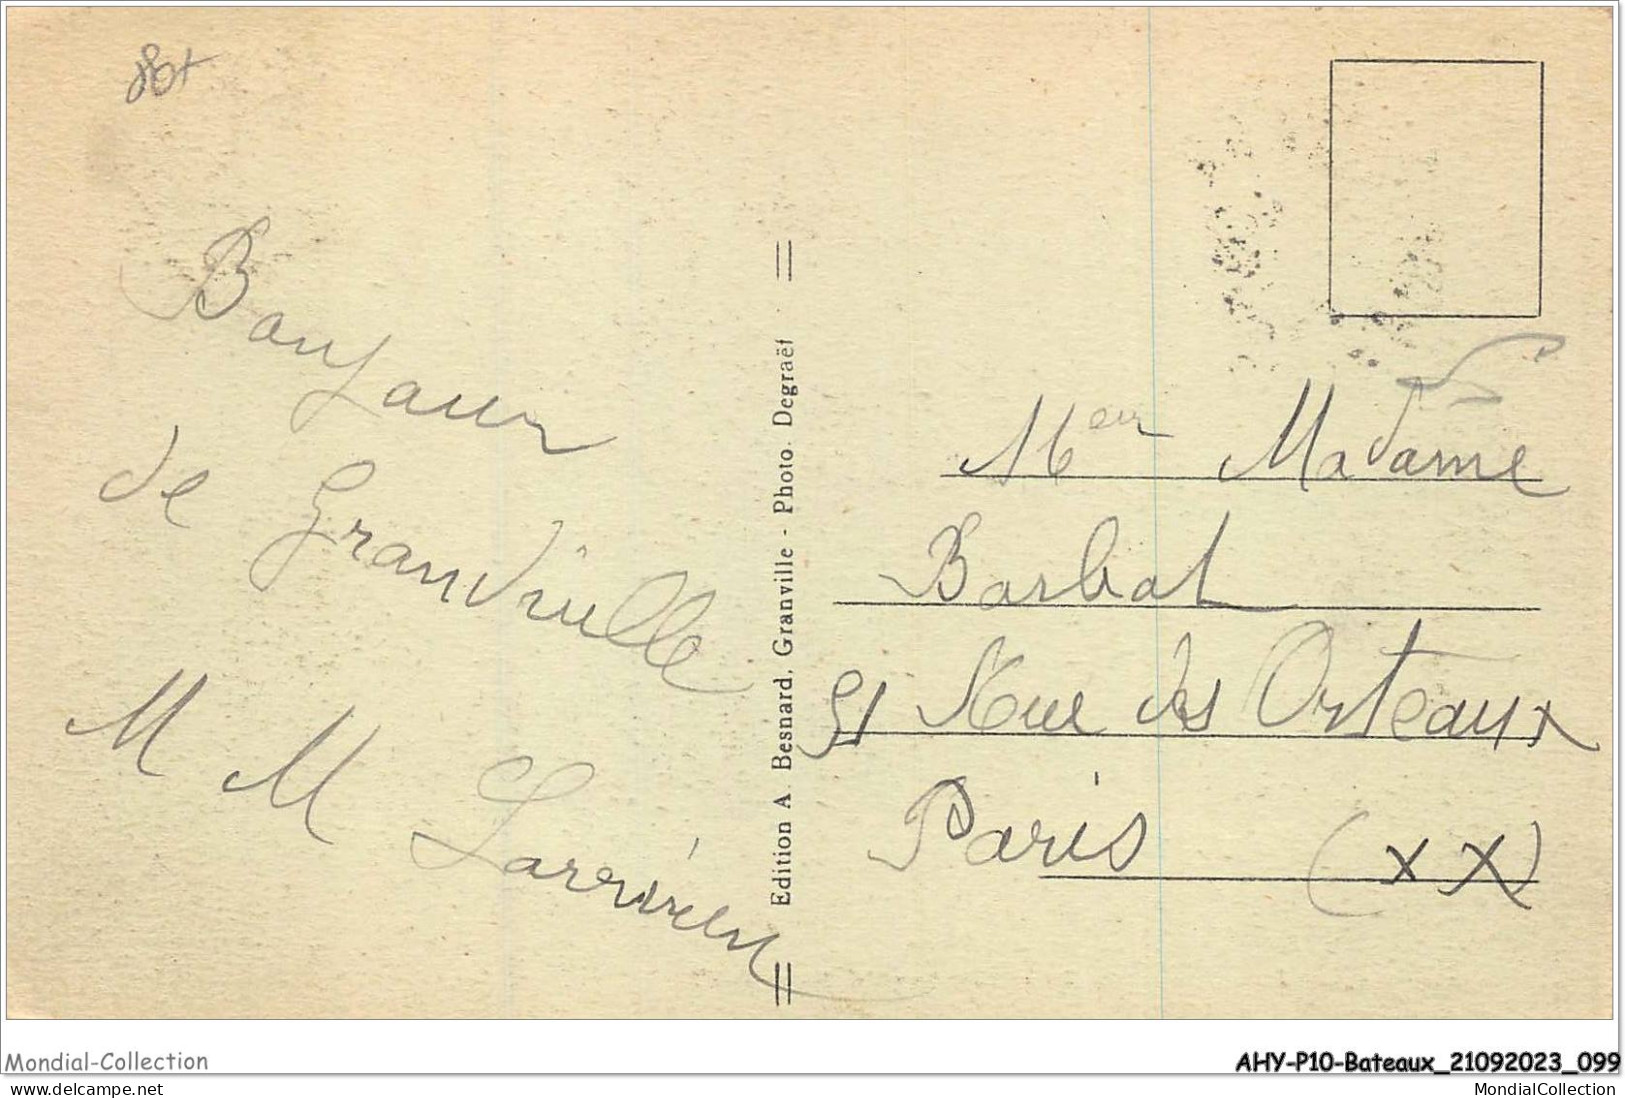 Bonjour
de Grandville
M M Larrivén
Edition A. Besnard, Granville - Photo. Degraët
Meur Madame
Barbat
51 Rue des Orteaux
Paris (XX)
Mondial-Collection
AHY-P10-Bateaux_21092023_099
www.delcampe.net
MondialCollection